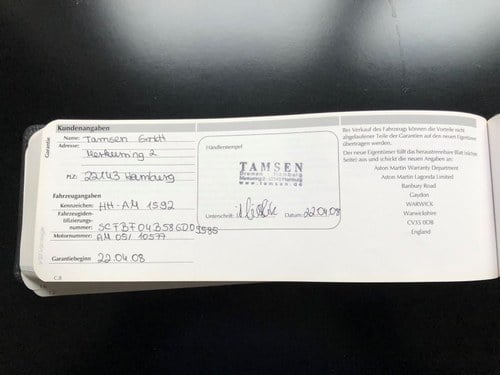 Garantie
Kundenangaben
Name: Tamsen GmbH
Adresse: Merkurring 2
PLZ: 22143 Hamburg
Fahrzeugangaben
Kennzeichen: HH-AM 1592
Fahrzeugiden-
tifizierungs-
nummer: SCFBF04B58GD09585
Motornummer: AM 05/ 10577
Garantiebeginn 22.04.08
C.8
Händlerstempel
TAMSEN
Bremen Hamburg
www.tamsen.de
Unterschrift: Datum: 22.04.08
Bei Verkauf des Fahrzeugs können die Vorteile nicht
abgelaufener Teile der Garantien auf den neuen Eigentümer
übertragen werden.
Der neue Eigentümer füllt das heraustrennbare Blatt (nächste
Seite) aus und schickt die neuen Angaben an:
Aston Martin Warranty Department
Aston Martin Lagonda Limited
Banbury Road
Gaydon
WARWICK
Warwickshire
CV35 0DB
England